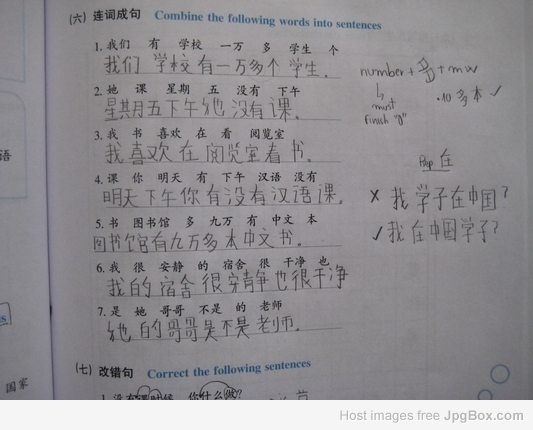 (六) 连词成句 Combine the following words into sentences
1. 我们 有 学校 一万 多 学生 个
我们 学校有一万多个 学生.
2. 她 课 星期 五 没有 下午
星期五下午她没有课.
3. 我 书 喜欢 在 看 阅览室
我喜欢在阅览室看书.
4. 课 你 明天 有 下午 汉语 没有
明天下午你有没有汉语课.
5. 书 图书馆 多 九万 有 中文 本
图书馆有九万多本中文书.
6. 我 很 安静 的 宿舍 很 干净 也
我的宿舍很安静也很干净
7. 是 她 哥哥 不是 的 老师
她的哥哥是不是老师.
(七) 改错句 Correct the following sentences
1. 没有课时候 你什么做?
number + 多 + mw
↳ must finish "0"
·10多本 ✓
Prep 在
× 我学子在中国?
✓ 我在中国学子?
语
国家
Host images free JpgBox.com